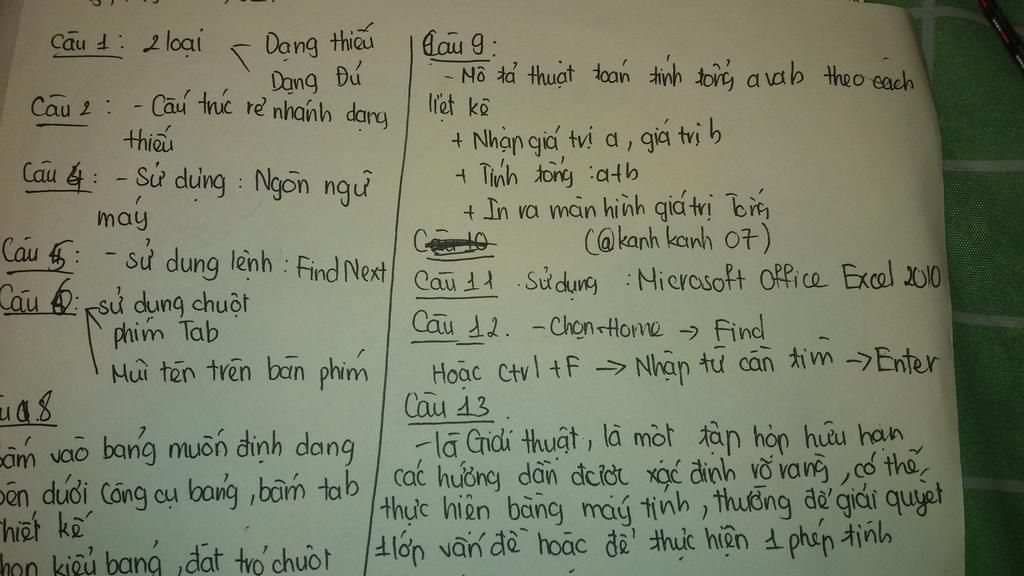 Câu 1: 2 loại
Dạng thiếu
Dạng Đủ
Câu 2: - Cấu trúc rẻ nhánh dạng
thiếu
Câu 4: - Sử dụng: Ngôn ngữ
máy
Câu 5: - sử dung lệnh: Find Next
Câu 6: sử dụng chuột
phím Tab
Mũi tên trên bàn phím
8
vào bảng muốn định dang
dưới công cụ bảng, bấm tab
kế
kiểu bảng, đặt trỏ chuột
Câu 9:
- Mô tả thuật toán tính tổng a và b theo cách
liệt kê
+ Nhập giá trị a, giá trị b
+ Tính tổng: a+b
+ In ra màn hình giá trị Tổng
(@kanh kanh 07)
Câu 11. Sử dụng: Microsoft Office Excel 2010
Câu 12. - Chọn Home → Find
Hoặc Ctrl + F → Nhập từ cần tìm → Enter
Câu 13.
- là Giải thuật, là một tập hợp hữu hạn
các hướng dẫn được xác định rõ ràng, có thể
thực hiện bằng máy tính, thường để giải quyết
1 lớp vấn đề hoặc để thực hiện 1 phép tính